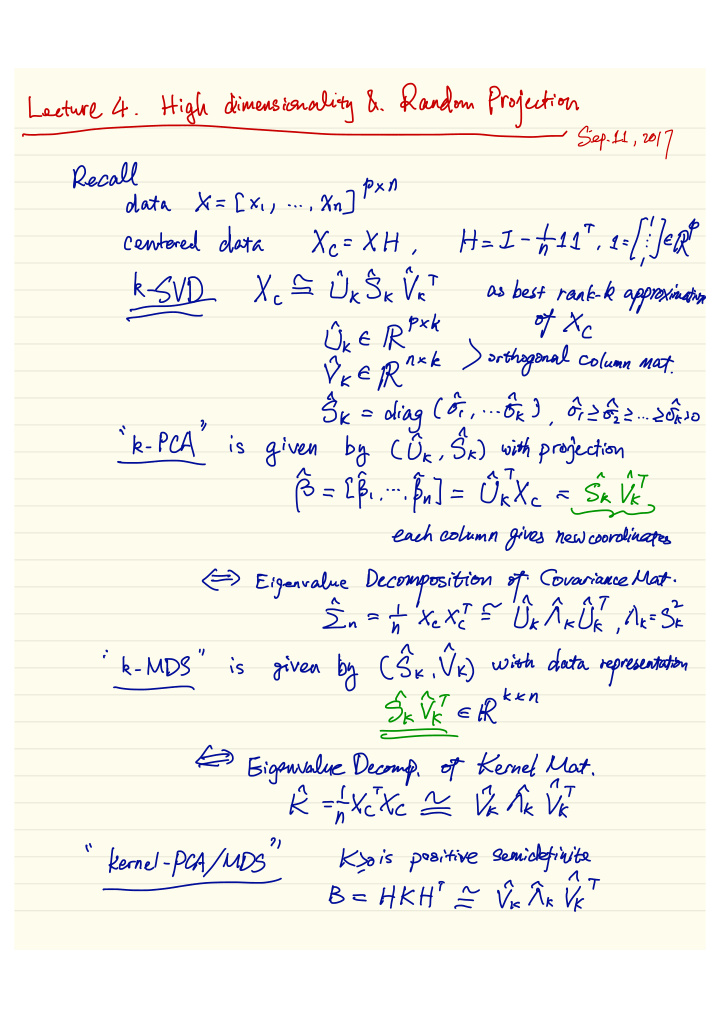 Lecture 4. High dimensionality & Random Projection
Sep. 11, 2017
Recall
data X = [x₁, ..., xₙ]^{p×n}
centered data X_c = XH, H = I - 1/n 11ᵀ, 1 = [1 ⋮ 1] ∈ ℝ^p
k-SVD X_c ≅ Û_k Ŝ_k V̂_kᵀ as best rank-k approximation
of X_c
Û_k ∈ ℝ^{p×k}
V̂_k ∈ ℝ^{n×k} > orthogonal column mat.
Ŝ_k = diag(σ̂₁, ... σ̂_k), σ̂₁ ≥ σ̂₂ ≥ ... ≥ σ̂_k > 0
"k-PCA" is given by (Û_k, Ŝ_k) with projection
β̂ = [β̂₁, ..., β̂ₙ] = Û_kᵀ X_c = Ŝ_k V̂_kᵀ
each column gives new coordinates
⟺ Eigenvalue Decomposition of Covariance Mat.
Σ̂ₙ = 1/n X_c X_cᵀ ≅ Û_k Λ̂_k Û_kᵀ, Λ_k = S_k²
"k-MDS" is given by (Ŝ_k, V̂_k) with data representation
Ŝ_k V̂_kᵀ ∈ ℝ^{k×n}
⟺ Eigenvalue Decomp. of Kernel Mat.
K̂ = 1/n X_cᵀ X_c ≅ V̂_k Λ̂_k V̂_kᵀ
"kernel-PCA/MDS" K ⪰ 0 is positive semidefinite
B = HKHᵀ ≅ V̂_k Λ̂_k V̂_kᵀ